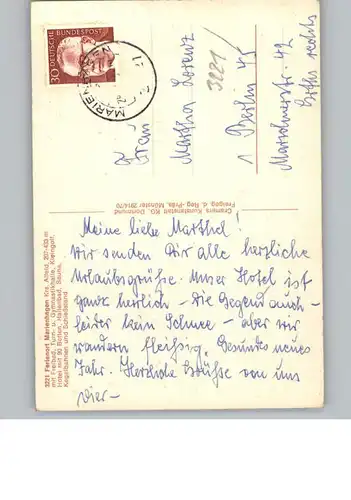 30
DEUTSCHE BUNDESPOST
MARIENHAGEN
3221/
Frau
Martha Lorenz
1 Berlin 45
42
Cramers Kunstanstalt KG, Dortmund
Freigeg. d. Reg.-Präs. Münster 2914/70
3221 Ferienort Marienhagen Krs. Alfeld, 207-433 m
mit Freibad, Turn- u. Gymnastikhalle, Kleingolf,
Hotel mit 90 Betten, Hallenbad, Sauna,
Kegelbahnen und Schießstand
Meine liebe Marthel!
Wir senden Dir alle herzliche
Urlaubsgrüße. Unser Hotel ist
ganz herrlich - die Gegend auch -
leider kein Schnee - aber wir
wandern fleißig. Gesundes neues
Jahr. Herzliche Grüße von uns
vier -